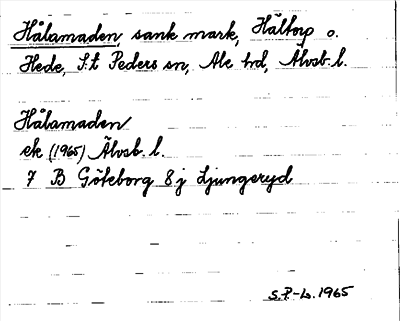 Hålamaden, sank mark, Hältorp o.
Hede, S:t Peders sn, Ale hd, Älvsb. l.
Hålamaden
ek (1965) Älvsb. l.
7 B Göteborg 8 j Ljungeryd
S.P-L. 1965